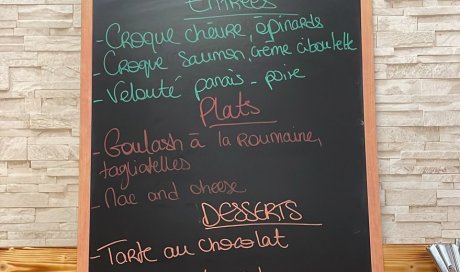 Entrées
- Croque chèvre, épinards
- Croque saumon, crème ciboulette
- Velouté panais - poire
Plats
- Goulash à la Roumaine,
tagliatelles
- Mac and cheese
DESSERTS
- Tarte au chocolat